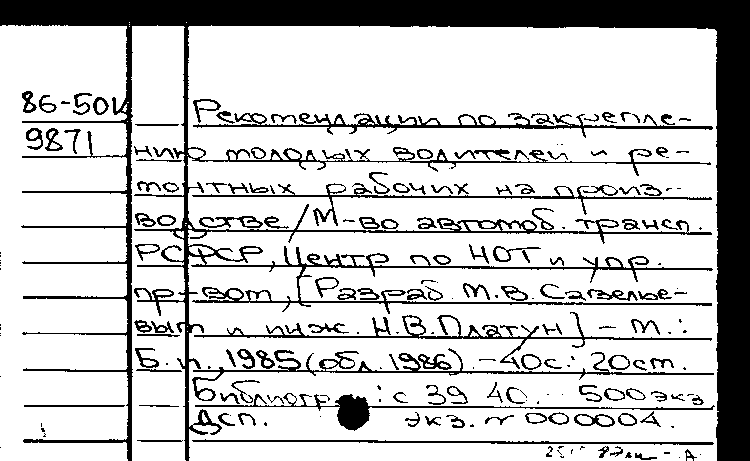 86-50И
9871
Рекомендации по закрепле-
нию молодых водителей и ре-
монтных рабочих на произ-
водстве/М-во автомоб. трансп.
РСФСР, Центр по НОТ и упр.
пр-вом, [Разраб. М.В. Савелье-
вым и инж. Н.В. Платун] - М.:
Б. и., 1985 (обл. 1986). - 40с.; 20см.
Библиогр.: с 39 40. 500 экз
Дсп. экз. № 000004.